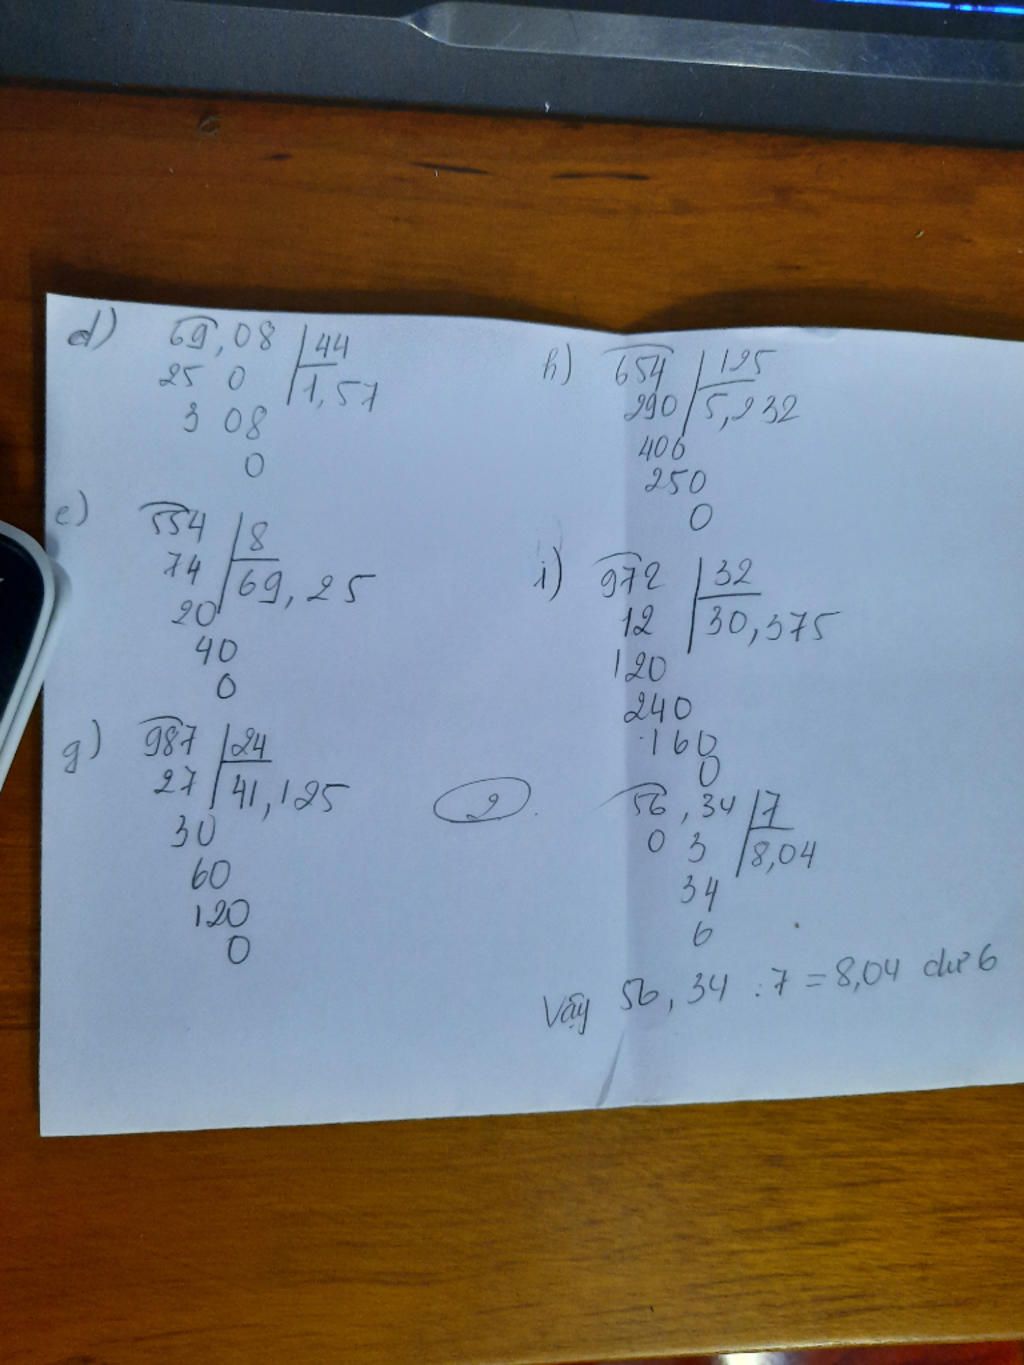 d) 69,08 | 44
25 0 | 1,57
3 08
0
e) 554 | 8
74 | 69,25
20
40
0
g) 987 | 24
27 | 41,125
30
60
120
0
h) 654 | 125
290 | 5,232
400
250
0
i) 972 | 32
12 | 30,375
120
240
160
0
2
56,34 | 7
0 3 | 8,04
34
6
Vậy 56,34 : 7 = 8,04 dư 6